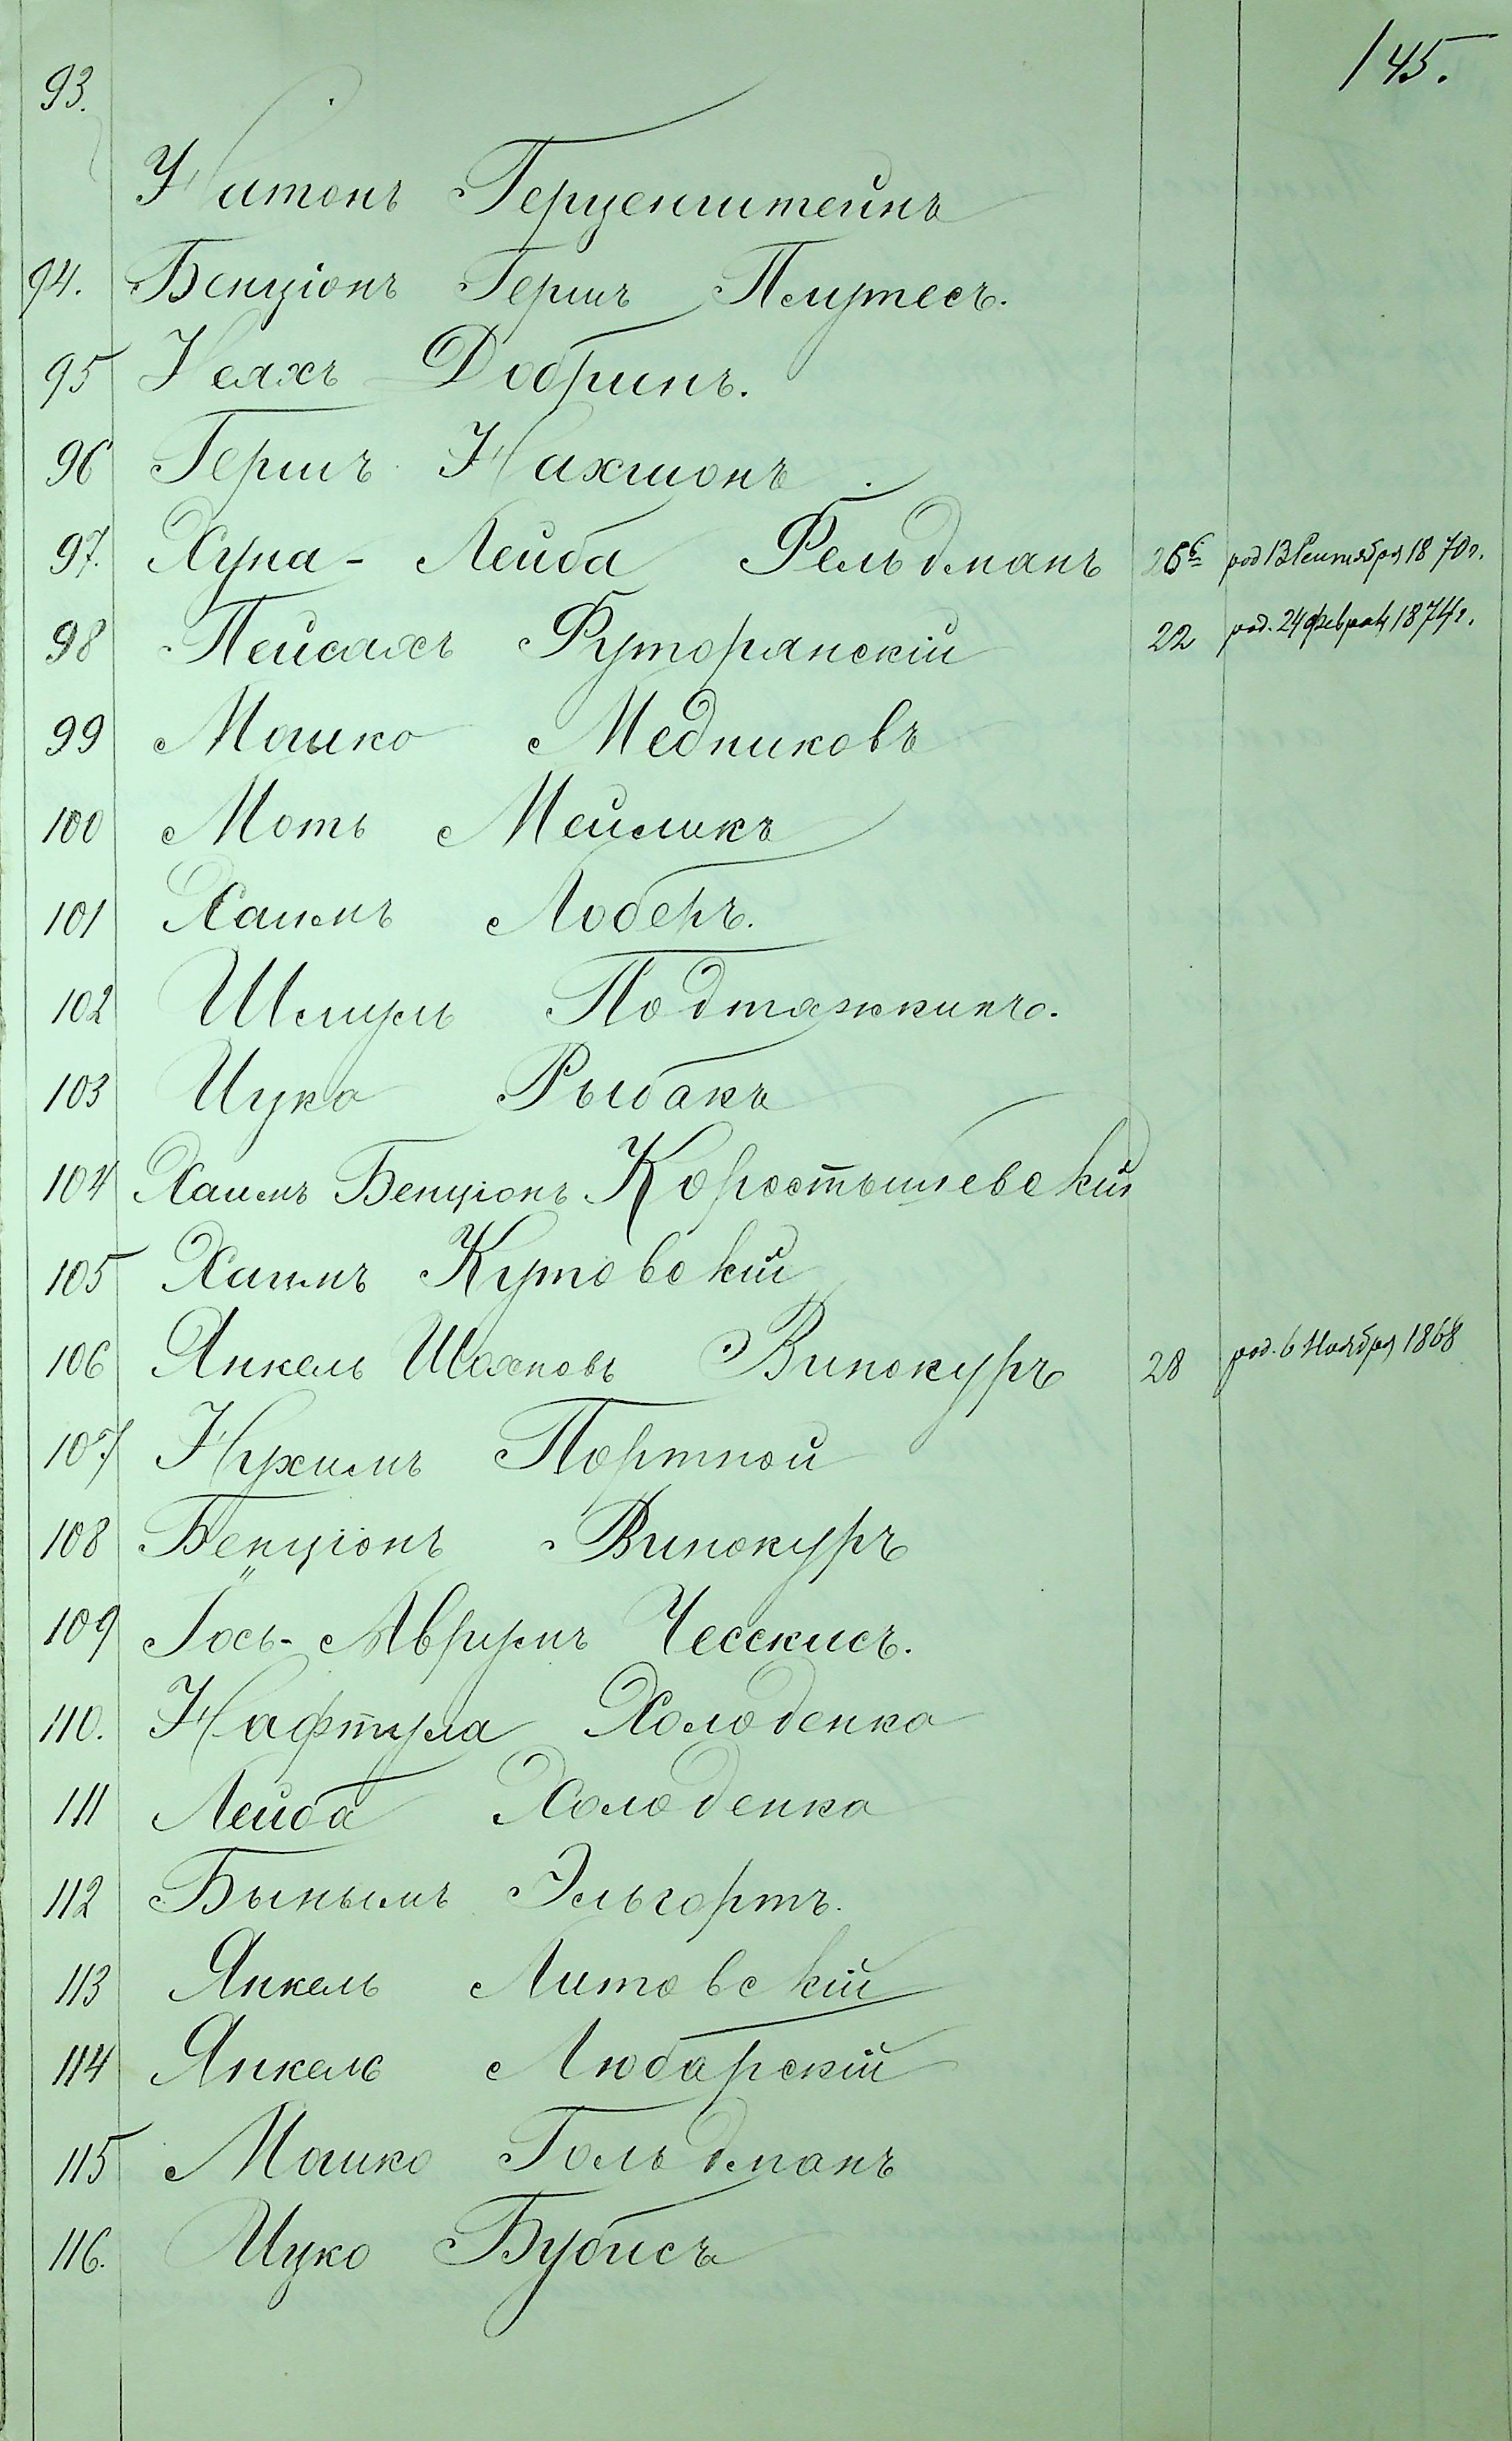 145.
93.
Натонъ Герценштейнъ
94. Бенціонъ Герш Плутесъ.
95 Неяхъ Добринъ.
96 Гершъ Нахшонъ
97. Хуна - Лейба Фельдманъ 26 род 13 Сентября 1870 г.
98 Пейсахъ Руторянскій 22 род. 24 Февраля 1874 г.
99 Мошко Медниковъ
100 Моть Мейликъ
101 Хаимъ Лоберъ.
102 Шмуль Подтяжкинъ.
103 Ицко Рыбакъ
104 Хаимъ Бенціонъ Коростышевскій
105 Хаимъ Кутовскій
106 Янкель Шахновъ Винокуръ 28 род. 6 Ноября 1868
107 Нухимъ Портной
108 Бенціонъ Винокуръ
109 Іось-Аврумъ Чесскисъ.
110. Нафтула Холоденко
111 Лейба Холоденко
112 Бынымъ Эльгортъ.
113 Янкель Литовскій
114 Янкель Любарскій
115 Мошко Гольдманъ
116. Ицко Бубисъ